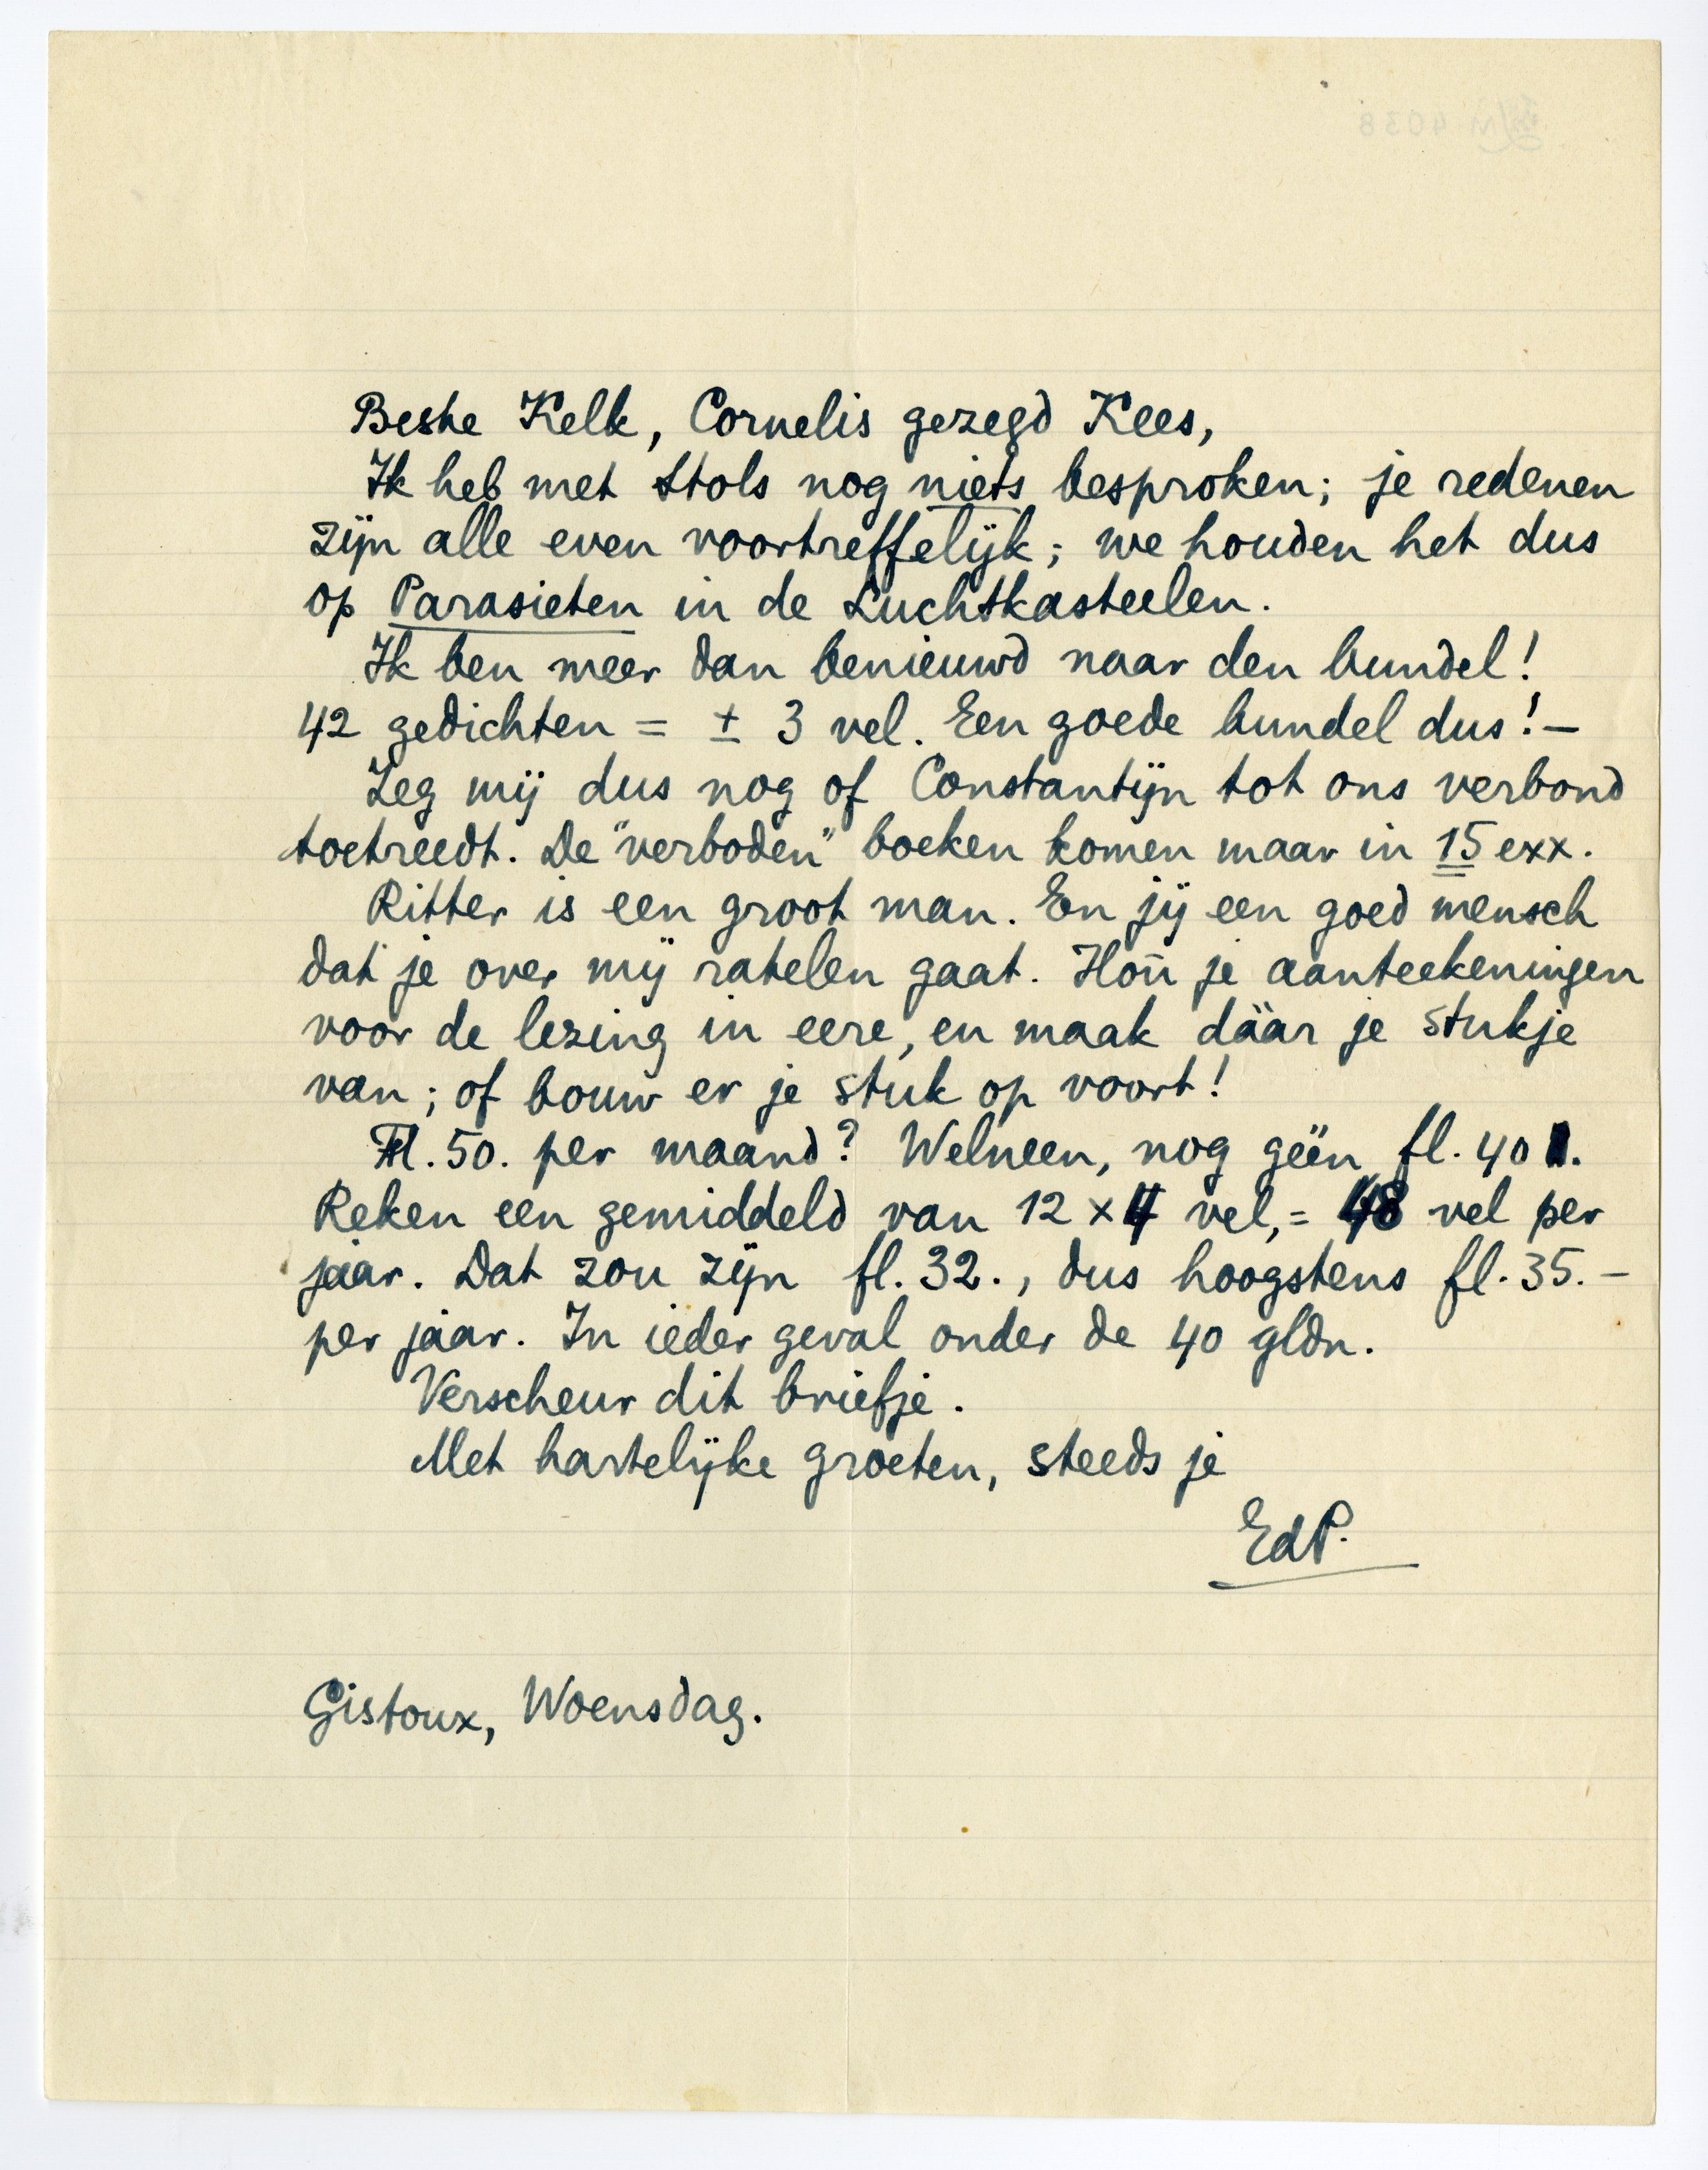 Beste Kelk, Cornelis gezegd Kees,
Ik heb met Stols nog niets besproken; je redenen
zijn alle even voortreffelijk; we houden het dus
op Parasieten in de Luchtkasteelen.
Ik ben meer dan benieuwd naar den bundel!
42 gedichten = ± 3 vel. Een goede bundel dus! —
Zeg mij dus nog of Constantijn tot ons verbond
toetreedt. De "verboden" boeken komen maar in 15 exx.
Ritter is een groot man. En jij een goed mensch
dat je over mij ratelen gaat. Hou je aanteekeningen
voor de lezing in eere, en maak dáár je stukje
van; of bouw er je stuk op voort!
Fl. 50. per maand? Welneen, nog géén fl. 40.
Reken een gemiddeld van 12 × 4 vel, = 48 vel per
jaar. Dat zou zijn fl. 32., dus hoogstens fl. 35. —
per jaar. In ieder geval onder de 40 gldn.
Verscheur dit briefje.
Met hartelijke groeten, steeds je
EdP.
Gistoux, Woensdag.